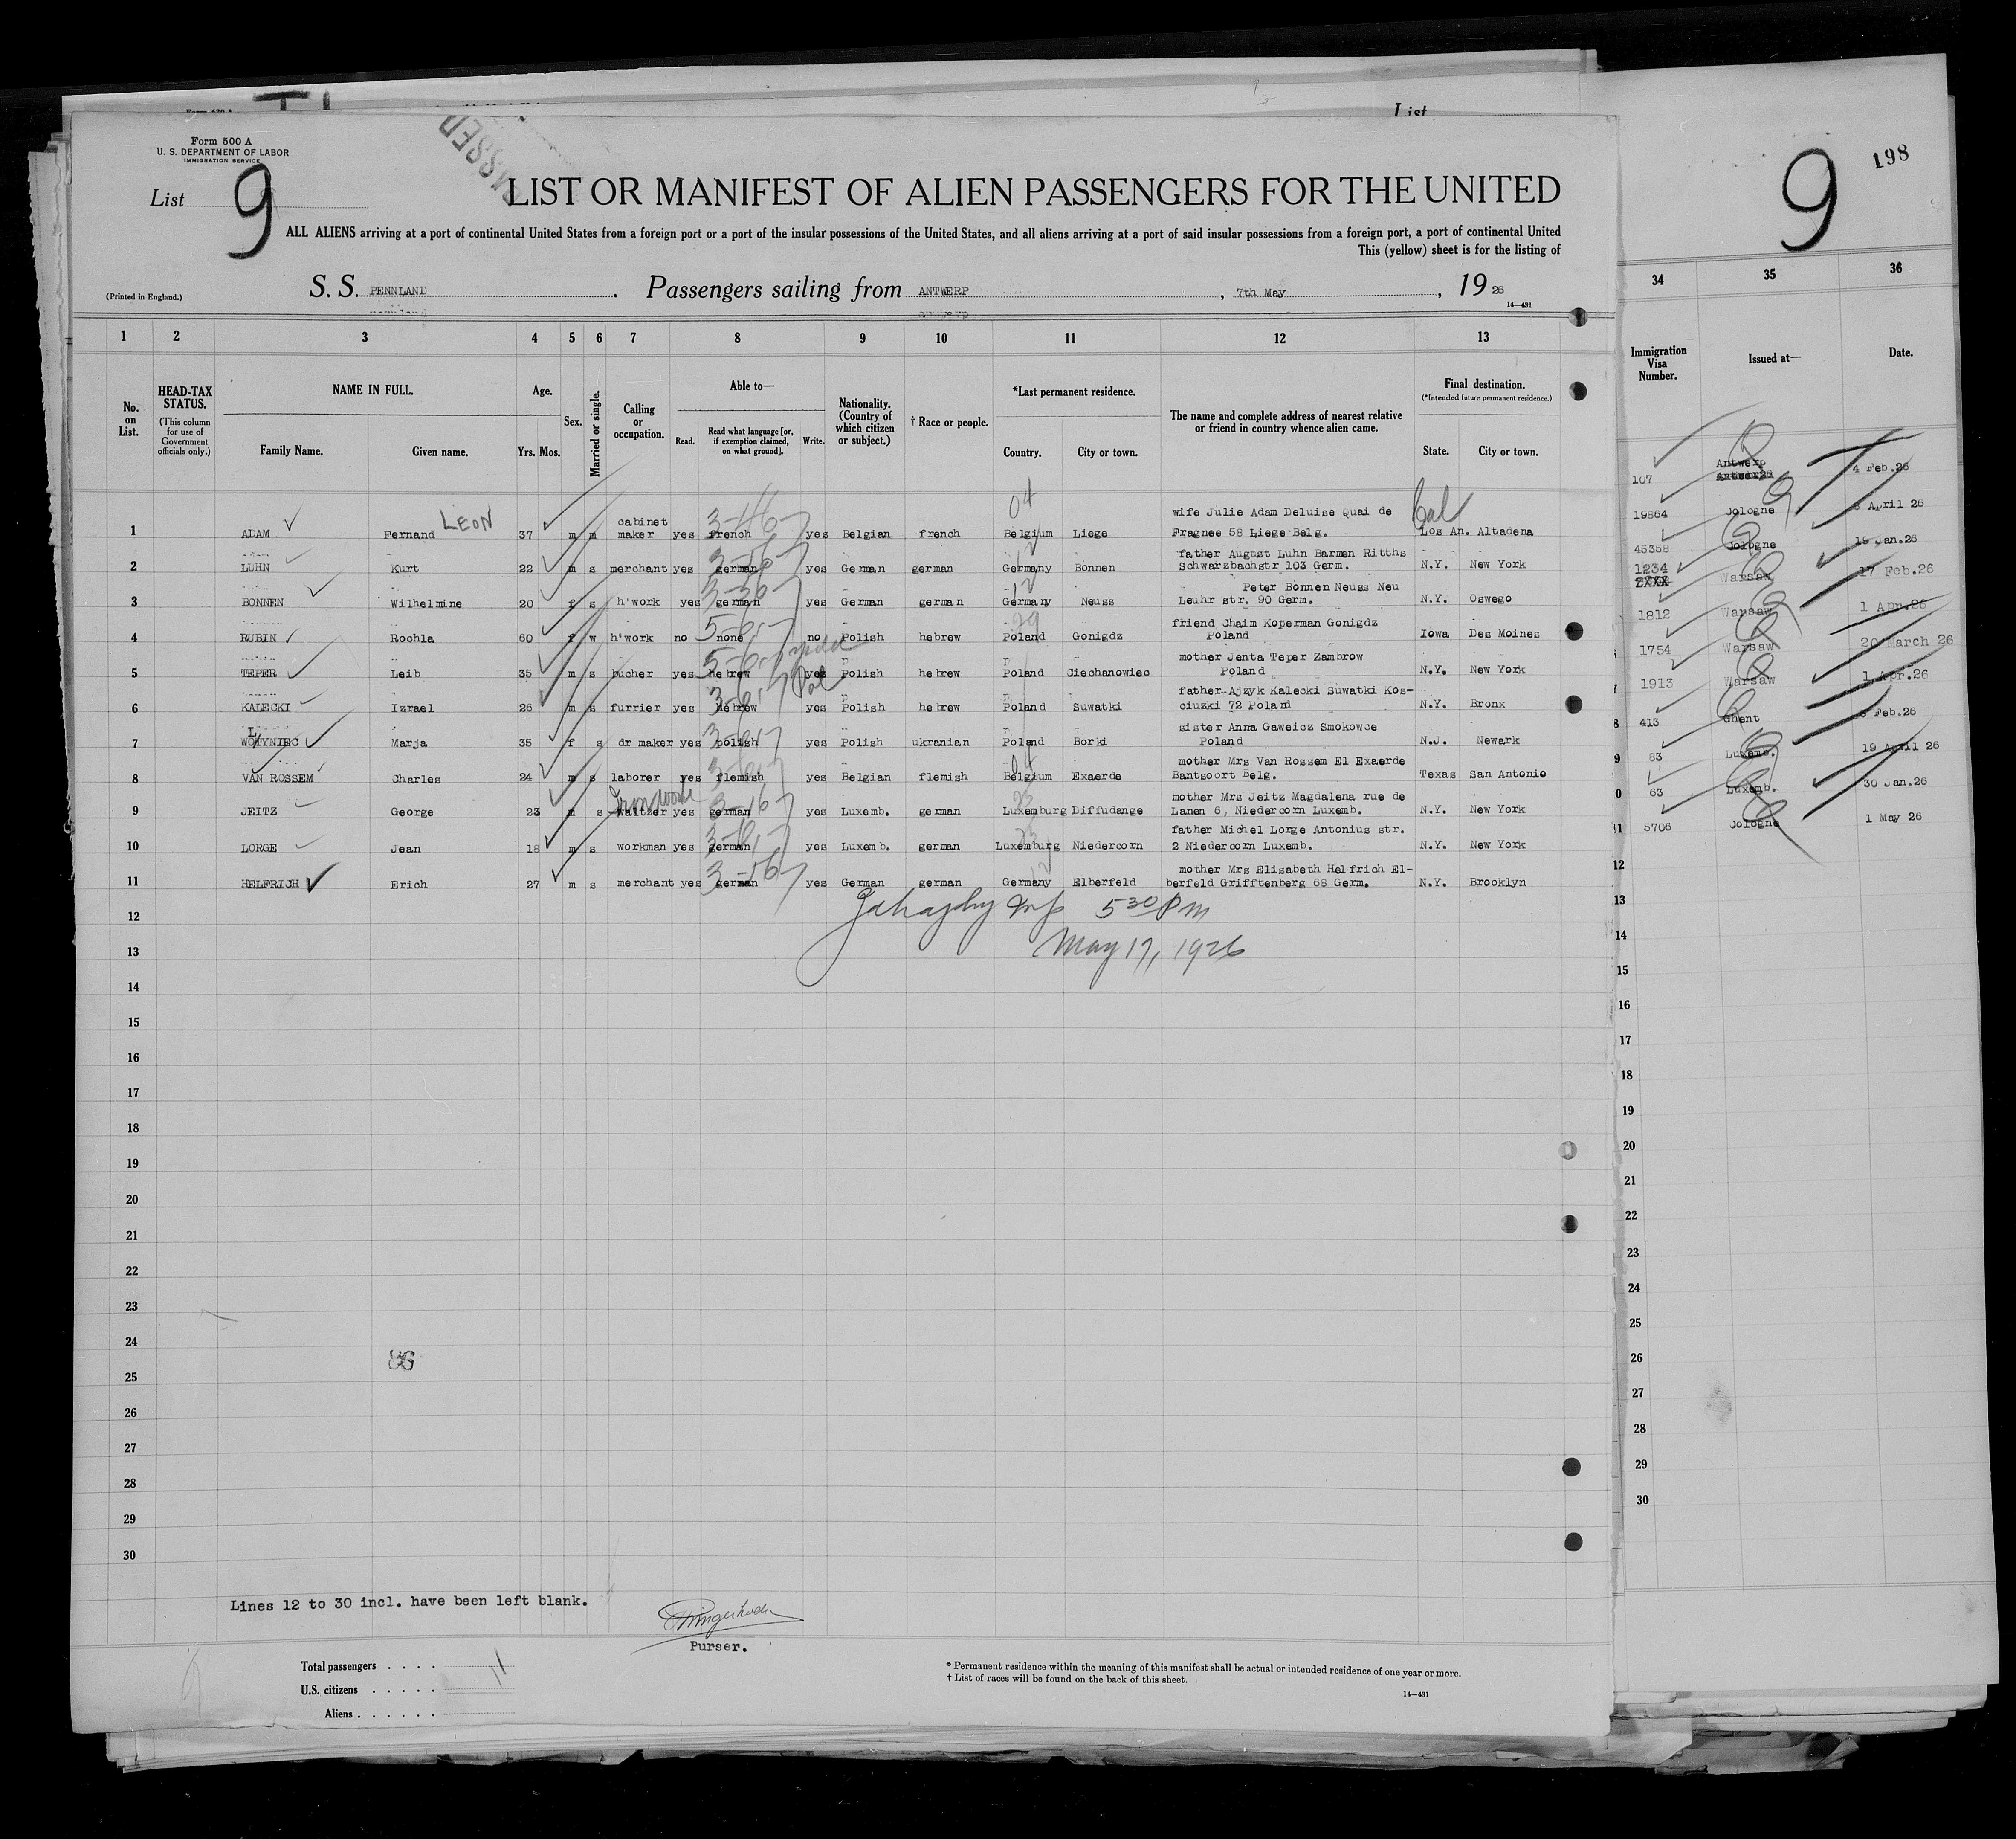 Form 500 A
U. S. DEPARTMENT OF LABOR
IMMIGRATION SERVICE
List
List 9
9
198
LIST OR MANIFEST OF ALIEN PASSENGERS FOR THE UNITED
ALL ALIENS arriving at a port of continental United States from a foreign port or a port of the insular possessions of the United States, and all aliens arriving at a port of said insular possessions from a foreign port, a port of continental United
This (yellow) sheet is for the listing of
(Printed in England.)
S. S. PENNLAND. Passengers sailing from ANTWERP, 7th May, 1926
14—431
1 2 3 4 5 6 7 8 9 10 11 12 13 34 35 36
No. on List.
HEAD-TAX STATUS.
(This column for use of Government officials only.)
NAME IN FULL.
Family Name. Given name.
Age.
Yrs. Mos.
Sex.
Married or single.
Calling or occupation.
Able to—
Read. Read what language [or, if exemption claimed, on what ground]. Write.
Nationality. (Country of which citizen or subject.)
† Race or people.
*Last permanent residence.
Country. City or town.
The name and complete address of nearest relative or friend in country whence alien came.
Final destination.
(*Intended future permanent residence.)
State. City or town.
Immigration Visa Number.
Issued at—
Date.
1 ADAM Fernand LEON 37 m m cabinet maker yes french yes Belgian french Belgium Liege wife Julie Adam Deluise Quai de Fragnee 58 Liege Belg. Cal Los An. Altadena
2 LUHN Kurt 22 m s merchant yes german yes German german Germany Bonnen father August Luhn Barmen Ritths Schwarzbachstr 103 Germ. N.Y. New York
3 BONNEN Wilhelmine 20 f s h'work yes german yes German german Germany Neuss Peter Bonnen Neuss Neu Leuhr str. 90 Germ. N.Y. Oswego
4 RUBIN Rochla 60 f w h'work no none no Polish hebrew Poland Gonigdz friend Jhaim Koperman Gonigdz Poland Iowa Des Moines
5 TEPER Leib 35 m s bucher yes hebrew yes Polish hebrew Poland Ciechanowiec mother Jenta Teper Zambrow Poland N.Y. New York
6 KALECKI Izrael 26 m s furrier yes hebrew yes Polish hebrew Poland Suwatki father Ajzyk Kalecki Suwatki Kosciuzki 72 Poland N.Y. Bronx
7 WOTYNIEC Marja 35 f s dr maker yes polish yes Polish ukranian Poland Borki sister Anna Gaweicz Smokowce Poland N.J. Newark
8 VAN ROSSEM Charles 24 m s laborer yes flemish yes Belgian flemish Belgium Exaerde mother Mrs Van Rossem El Exaerde Bantsoort Belg. Texas San Antonio
9 JEITZ George 23 m s waitzer yes german yes Luxemb. german Luxemburg Diffudange mother Mrs Jeitz Magdalena rue de Lanen 6, Niedercorn Luxemb. N.Y. New York
10 LORGE Jean 18 m s workman yes german yes Luxemb. german Luxemburg Niedercorn father Michel Lorge Antonius str. 2 Niedercorn Luxemb. N.Y. New York
11 HELFRICH Erich 27 m s merchant yes german yes German german Germany Elberfeld mother Mrs Elisabeth Helfrich Elberfeld Grifftenberg 68 Germ. N.Y. Brooklyn
107 Antwerp 4 Feb.26
19864 Cologne April 26
45358 Cologne 19 Jan.26
1234 Warsaw 17 Feb.26
1812 Warsaw 1 Apr.26
1754 Warsaw 20 March 26
1913 Warsaw 1 Apr.26
413 Ghent Feb.26
83 Luxemb. 19 April 26
63 Luxemb. 30 Jan.26
5706 Cologne 1 May 26
12 5 30 PM
13 May 17, 1926
14
15
16
17
18
19
20
21
22
23
24
25
26
27
28
29
30
Lines 12 to 30 incl. have been left blank.
Purser.
Total passengers . . . . 11
U.S. citizens . . . . .
Aliens . . . . . .
* Permanent residence within the meaning of this manifest shall be actual or intended residence of one year or more.
† List of races will be found on the back of this sheet.
14—431